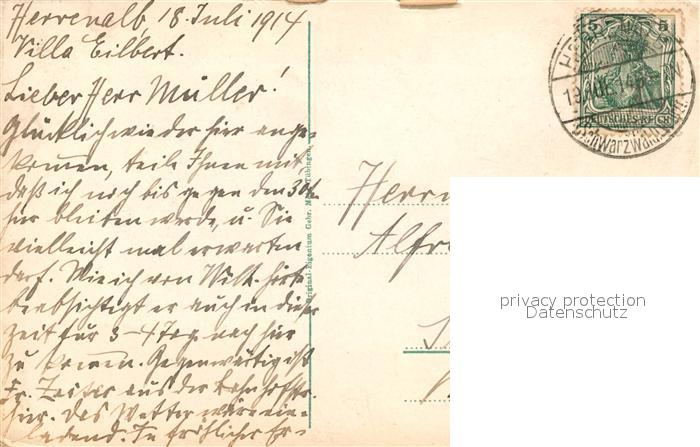 Herrenalb 18. Juli 1914
Villa Eilbert.
Lieber Herr Müller!
Glücklich wieder hier ange-
kommen, teile Ihnen mit
daß ich noch bis gegen den 30ten
hier bleiben werde, u. Sie
vielleicht mal erwarten
darf. Wie ich von Wilh. hörte
beabsichtigt er auch in dieser
Zeit für 3-4 Tage nach hier
zu kommen. Gegenwärtig ist
Fr. Zeiser aus der Bahnhofstr.
hier. Das Wetter wäre ein-
ladend. In fröhlicher Er-
Original-Eigentum Gebr. Tübingen
5 5
DEUTSCHES REICH
Schwarzwald
Herrn
Alfr
privacy protection
Datenschutz